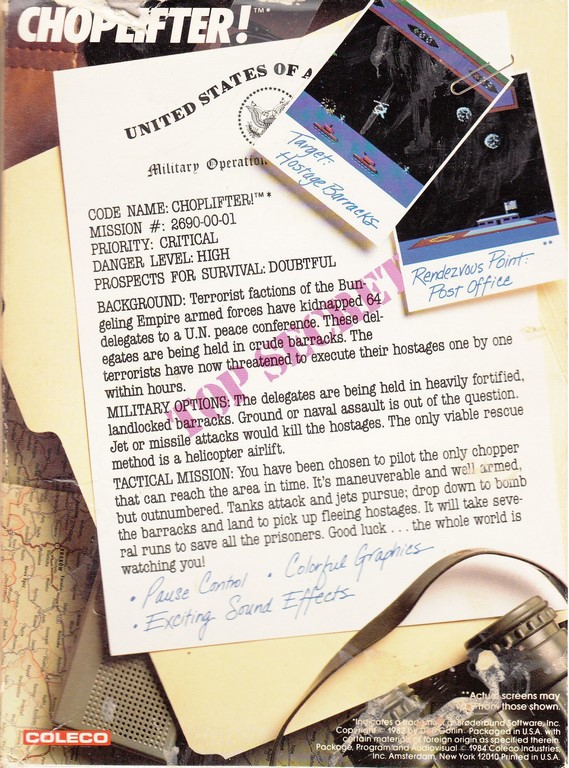 CHOPLIFTER!™*
UNITED STATES OF A
Military Operation
Target:
Hostage Barracks
**
Rendezvous Point:
Post Office
CODE NAME: CHOPLIFTER!™*
MISSION #: 2690-00-01
PRIORITY: CRITICAL
DANGER LEVEL: HIGH
PROSPECTS FOR SURVIVAL: DOUBTFUL
BACKGROUND: Terrorist factions of the Bun-
geling Empire armed forces have kidnapped 64
delegates to a U.N. peace conference. These del-
egates are being held in crude barracks. The
terrorists have now threatened to execute their hostages one by one
within hours.
TOP SECRET
MILITARY OPTIONS: The delegates are being held in heavily fortified,
landlocked barracks. Ground or naval assault is out of the question.
Jet or missile attacks would kill the hostages. The only viable rescue
method is a helicopter airlift.
TACTICAL MISSION: You have been chosen to pilot the only chopper
that can reach the area in time. It's maneuverable and well armed,
but outnumbered. Tanks attack and jets pursue; drop down to bomb
the barracks and land to pick up fleeing hostages. It will take seve-
ral runs to save all the prisoners. Good luck . . . the whole world is
watching you!
• Pause Control • Colorful Graphics
• Exciting Sound Effects
**Actual screens may
vary from those shown.
*Indicates a trademark of Brøderbund Software, Inc.
Copyright © 1982 by Dan Gorlin. Packaged in U.S.A. with
certain materials of foreign origin as specified therein.
Package, Program and Audiovisual © 1984 Coleco Industries,
Inc. Amsterdam, New York 12010 Printed in U.S.A.
COLECO